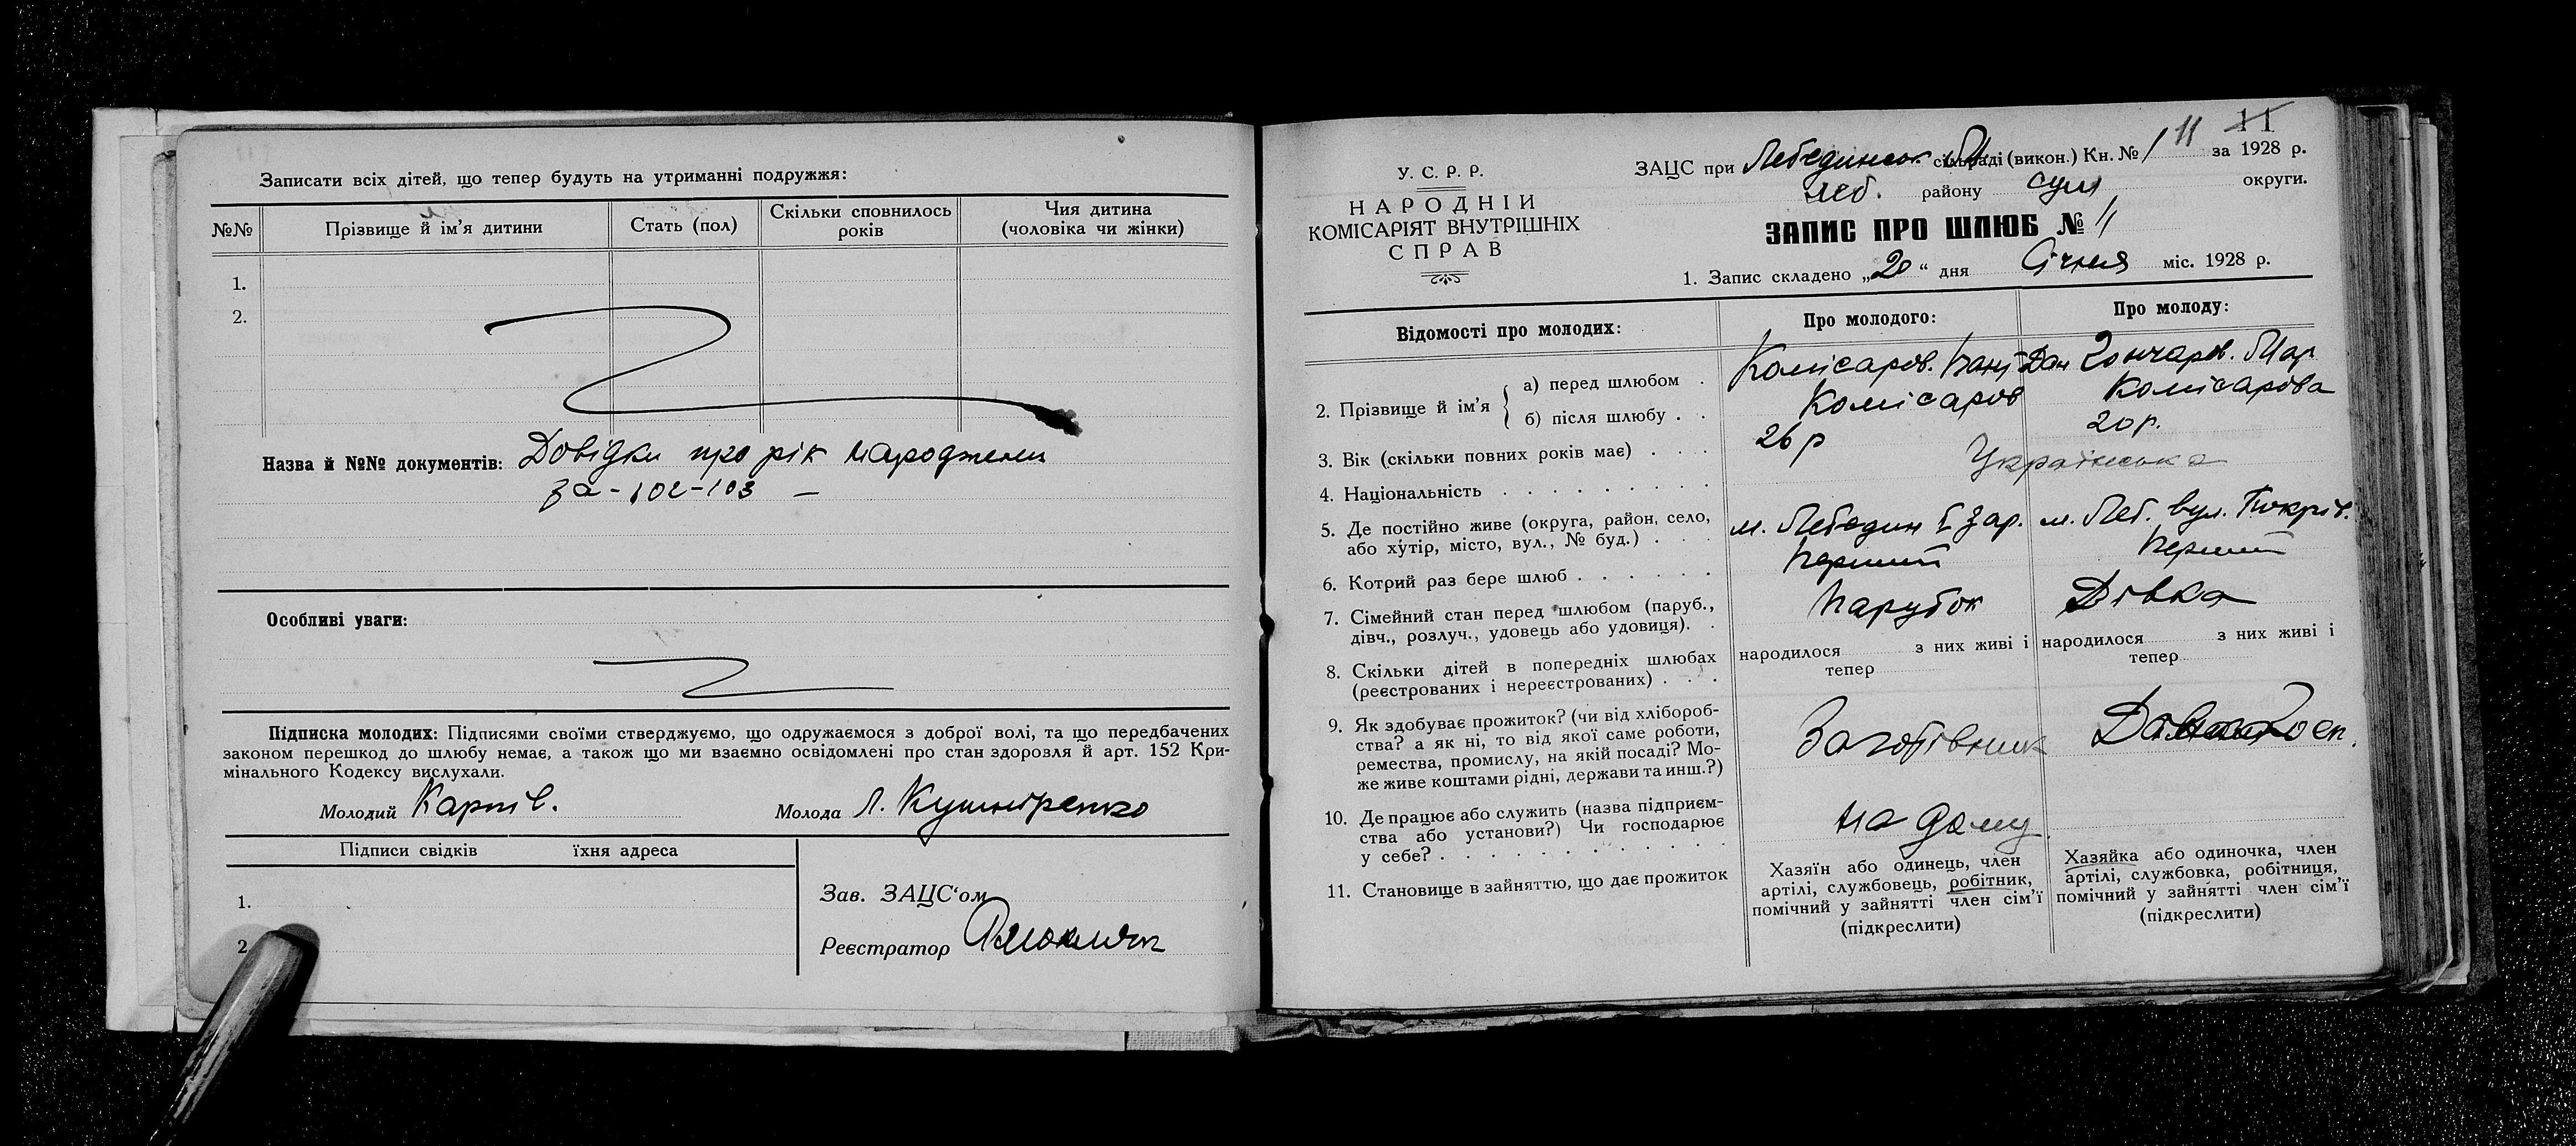 Записати всіх дітей, що тепер будуть на утриманні подружжя:
№№ Прізвище й ім'я дитини Стать (пол) Скільки сповнилось років Чия дитина (чоловіка чи жінки)
1.
2.
Назва й №№ документів: Довідки про рік народження
за - 102-103 —
Особливі уваги:
Підписка молодих: Підписами своїми стверджуємо, що одружаємося з доброї волі, та що передбачених
законом перешкод до шлюбу немає, а також що ми взаємно освідомлені про стан здоровля й арт. 152 Кри-
мінального Кодексу вислухали.
Молодий Карпів. Молода Л. Кушніренко
Підписи свідків їхня адреса
1.
2.
Зав. ЗАЦС'ом
Реєстратор
11
У. С. Р. Р.
НАРОДНІЙ
КОМІСАРІЯТ ВНУТРІШНІХ
СПРАВ
ЗАЦС при Лебединськ сільраді (викон.) Кн. № 1 11 за 1928 р.
Леб. району Сум округи.
ЗАПИС ПРО ШЛЮБ № 11
1. Запис складено „20" дня Січня міс. 1928 р.
Відомості про молодих: Про молодого: Про молоду:
2. Прізвище й ім'я { а) перед шлюбом . Комісаров. Гончаров. Мар
б) після шлюбу . . Комісаров Комісарова
3. Вік (скільки повних років має) . . . 26 р 20 р.
4. Національність . . . . . . . . . Українська
5. Де постійно живе (округа, район, село,
або хутір, місто, вул., № буд.) . . . м. Лебедин І зар. м. Леб. вул. Покрів.
6. Котрий раз бере шлюб . . . . . . Перший Перший
7. Сімейний стан перед шлюбом (паруб.,
дівч., розлуч., удовець або удовиця). . Парубок Дівка
8. Скільки дітей в попередніх шлюбах
(реєстрованих і нереєстрованих) . . .
народилося з них живі і тепер
народилося з них живі і тепер
9. Як здобуває прожиток? (чи від хлібороб-
ства? а як ні, то від якої саме роботи,
ремества, промислу, на якій посаді? Мо-
же живе коштами рідні, держави та инш.?)
Заготівник
10. Де працює або служить (назва підприєм-
ства або установи?) Чи господарює
у себе? . . . . . . . . . . . .
на дому
11. Становище в зайняттю, що дає прожиток
Хазяїн або одинець, член
артілі, службовець, робітник,
помічний у зайнятті член сім'ї
(підкреслити)
Хазяйка або одиночка, член
артілі, службовка, робітниця,
помічний у зайнятті член сім'ї
(підкреслити)